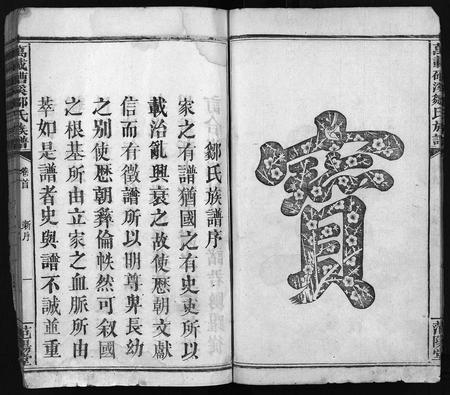 萬載漕溪鄒氏族譜
范陽堂
寶
鄒氏族譜序
家之有譜猶國之有史史所以
載治亂興衰之故使歷朝文獻
信而有徵譜所以明尊卑長幼
之別使歷朝彝倫軼然可叙國
之根基所由立家之血脈所由
萃如是譜者史與譜不誠並重
萬載漕溪鄒氏族譜
卷首
一
范陽堂